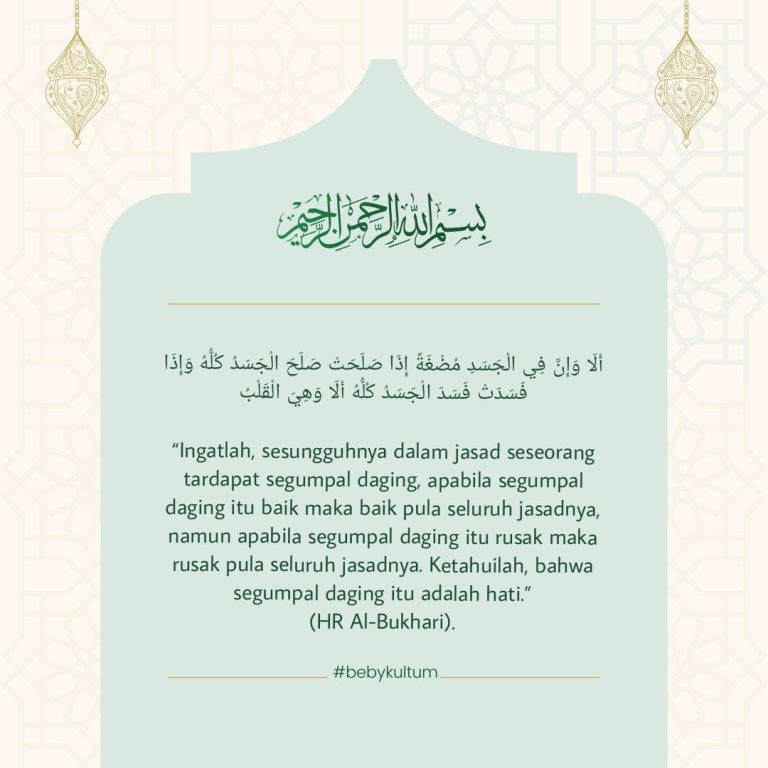 بِسْمِ اللهِ الرَّحْمَنِ الرَّحِيْمِ
ألَا وَإنَّ فِي الْجَسَدِ مُضْغَةً إِذَا صَلَحَتْ صَلَحَ الْجَسَدُ كُلُّهُ وَإذَا
فَسَدَتْ فَسَدَ الْجَسَدُ كُلُّهُ ألَا وَهِيَ الْقَلْبُ
“Ingatlah, sesungguhnya dalam jasad seseorang
tardapat segumpal daging, apabila segumpal
daging itu baik maka baik pula seluruh jasadnya,
namun apabila segumpal daging itu rusak maka
rusak pula seluruh jasadnya. Ketahuilah, bahwa
segumpal daging itu adalah hati.”
(HR Al-Bukhari).
#bebykultum